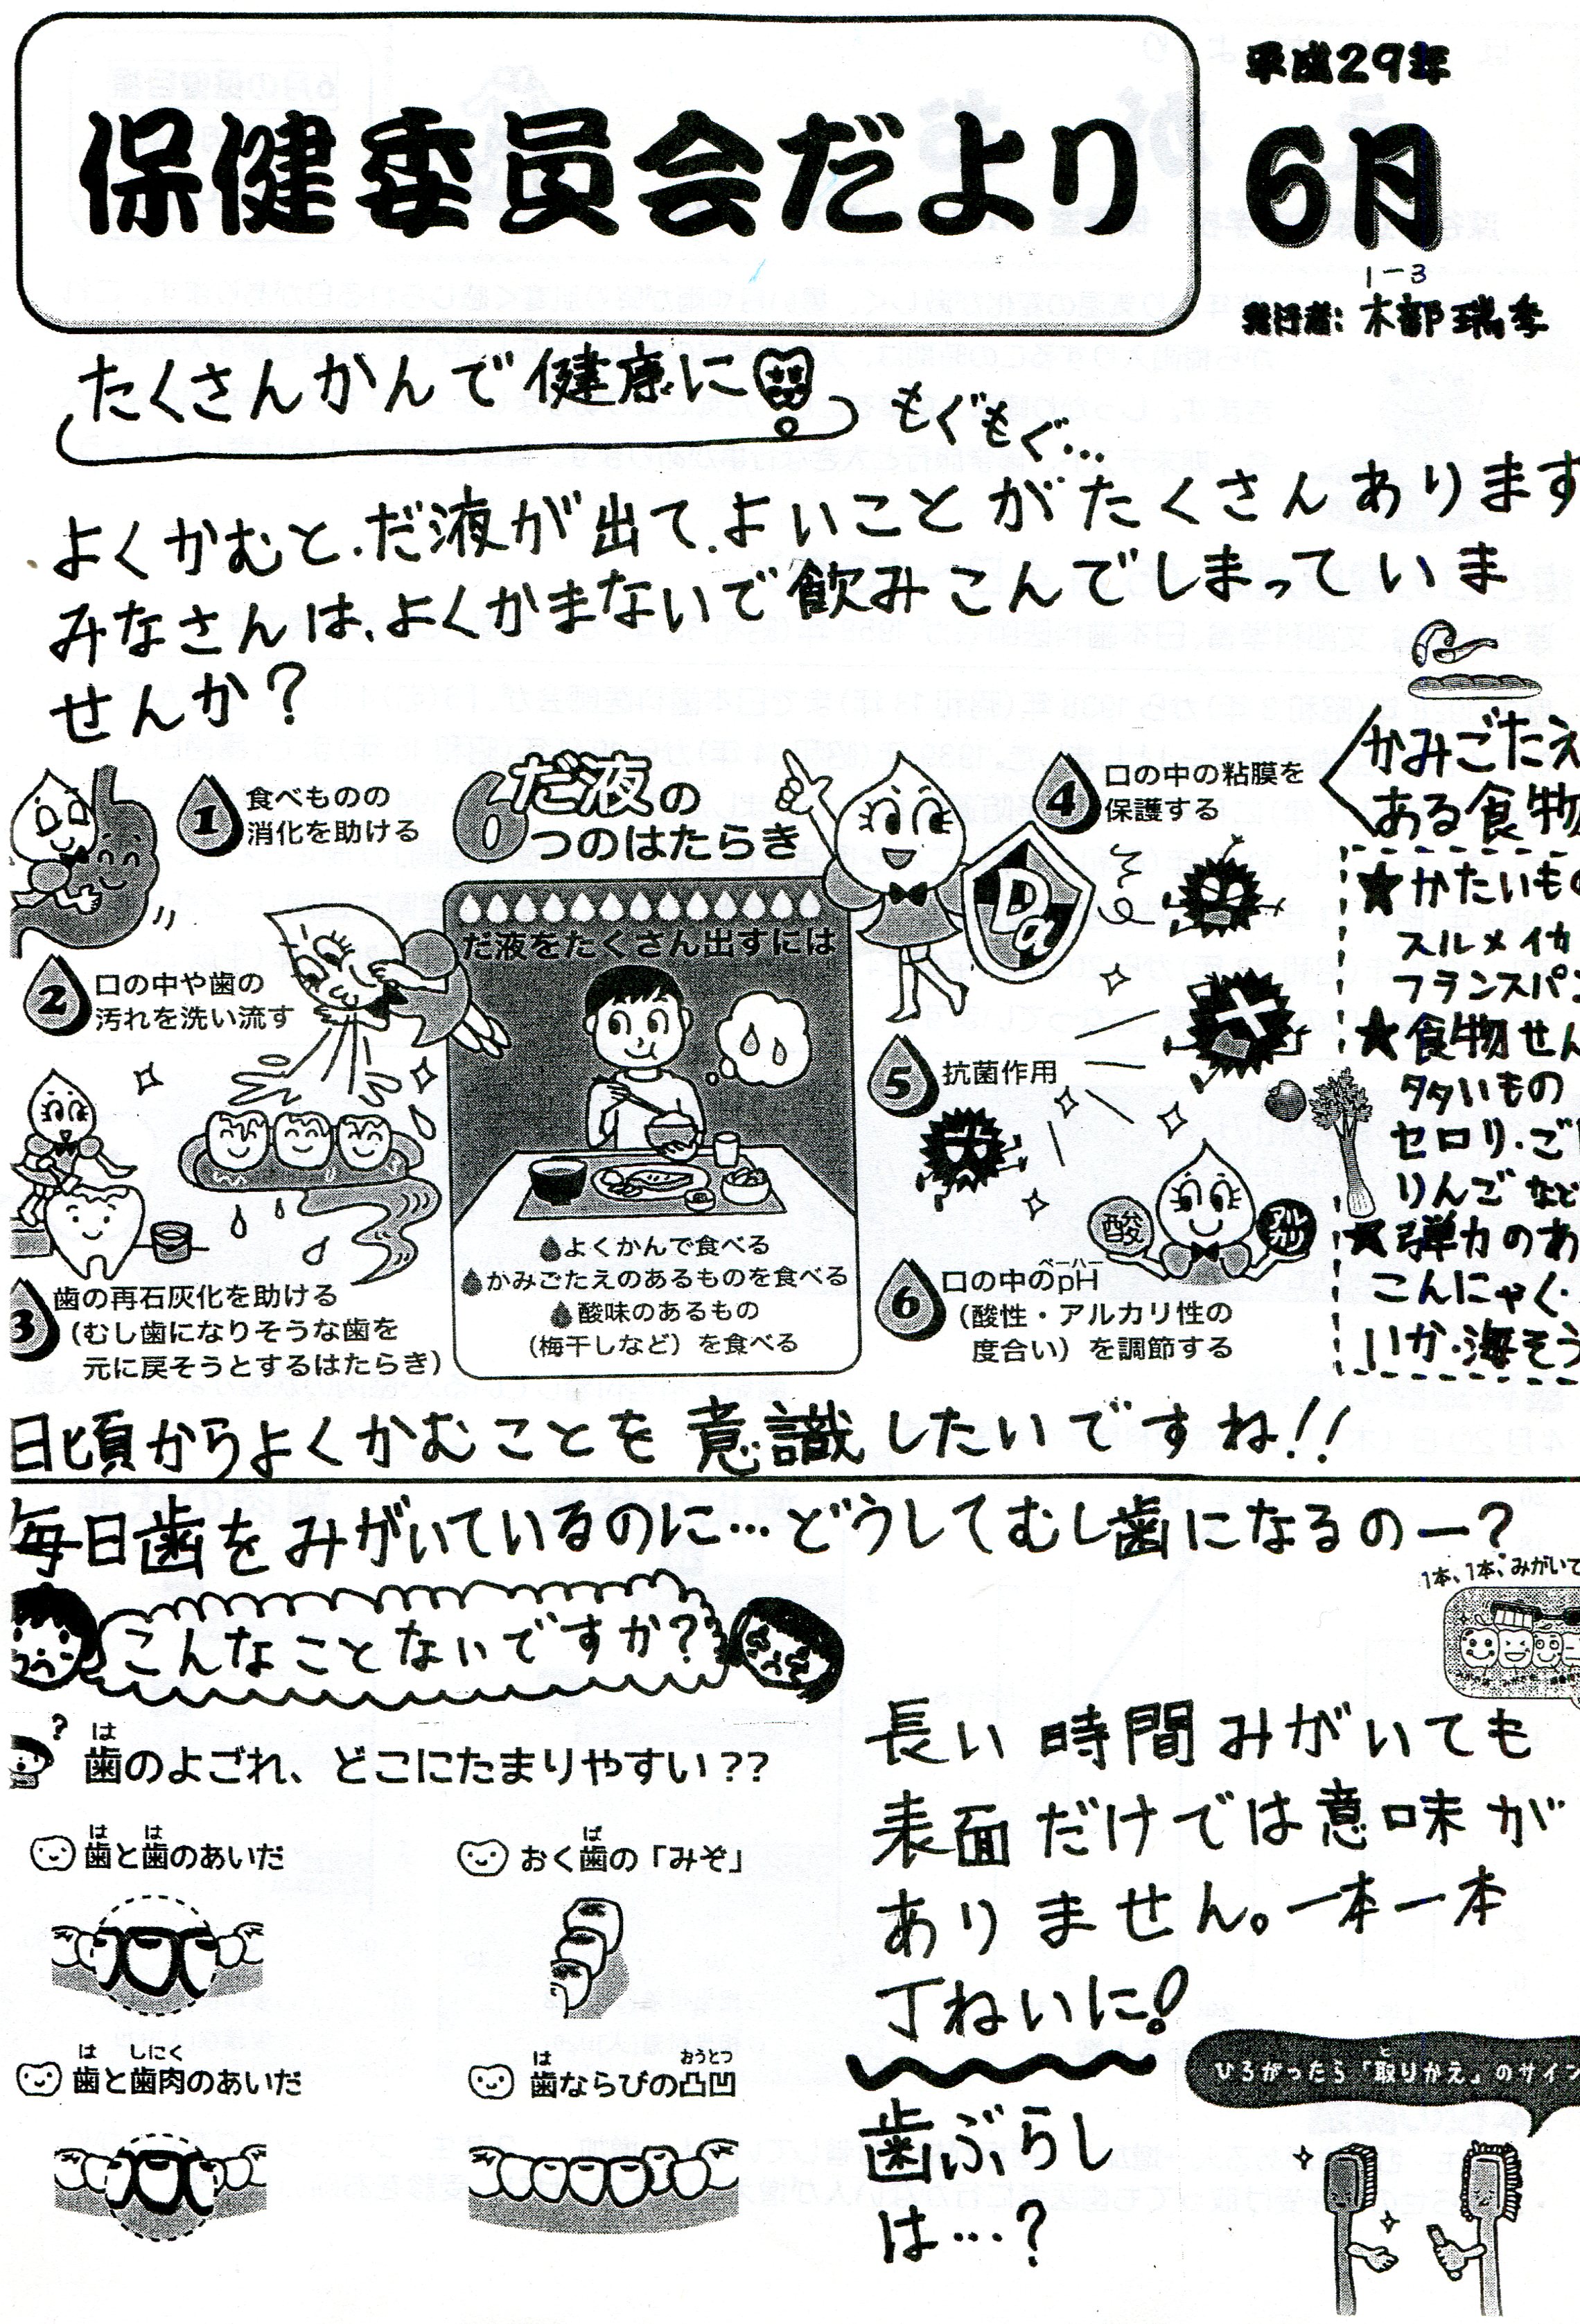 保健委員会だより
平成29年
6月
1-3
発行者：木部瑞季
たくさんかんで健康に
もぐもぐ…
よくかむと、だ液が出て、よいことがたくさんあります
みなさんは、よくかまないで飲みこんでしまっていま
せんか？
だ液の
6つのはたらき
1 食べものの
消化を助ける
2 口の中や歯の
汚れを洗い流す
3 歯の再石灰化を助ける
（むし歯になりそうな歯を
元に戻そうとするはたらき）
だ液をたくさん出すには
よくかんで食べる
かみごたえのあるものを食べる
酸味のあるもの
（梅干しなど）を食べる
Da
4 口の中の粘膜を
保護する
5 抗菌作用
酸
アルカリ
6 口の中のpH
ペーハー
（酸性・アルカリ性の
度合い）を調節する
かみごたえ
ある食物
★かたいもの
スルメイカ
フランスパン
★食物せん
多いもの
セロリ・ご
りんごなど
★弾力のあ
こんにゃく・
いか・海そう
日頃からよくかむことを意識したいですね!!
毎日歯をみがいているのに…どうしてむし歯になるのー？
こんなことないですか？
1本、1本、みがいて
は
歯のよごれ、どこにたまりやすい??
は は
歯と歯のあいだ
ば
おく歯の「みぞ」
は しにく
歯と歯肉のあいだ
は おうとつ
歯ならびの凸凹
長い時間みがいても
表面だけでは意味が
ありません。一本一本
丁ねいに!
歯ぶらし
は…？
と
ひろがったら「取りかえ」のサイン